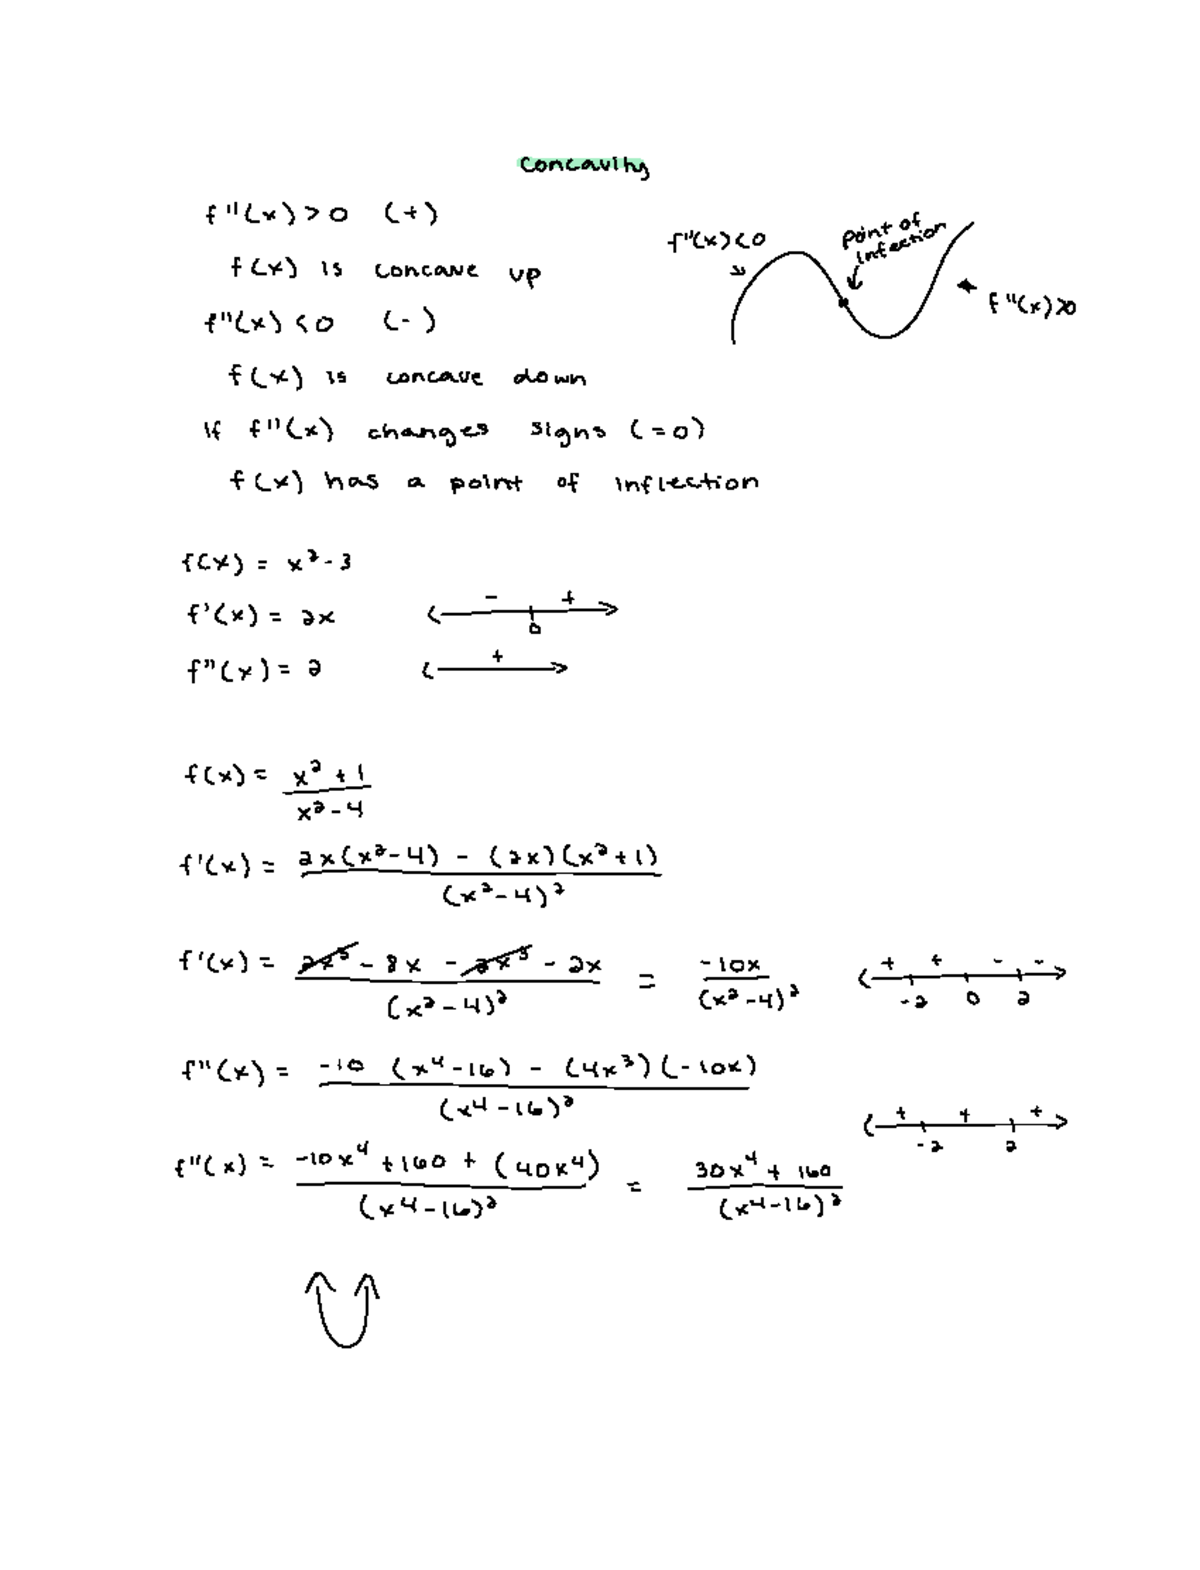 Concavity
f''(x) > 0 (+)
f(x) is concave up
f''(x) < 0 (-)
f(x) is concave down
If f''(x) changes signs (=0)
f(x) has a point of inflection
f''(x) < 0
point of
inflection
f''(x) > 0
f(x) = x² - 3
f'(x) = 2x
- +
0
f''(x) = 2
+
f(x) = (x² + 1)/(x² - 4)
f'(x) = (2x(x² - 4) - (2x)(x² + 1))/(x² - 4)²
f'(x) = (2x³ - 8x - 2x³ - 2x)/(x² - 4)² = -10x/(x² - 4)²
+ + - -
-2 0 2
f''(x) = (-10 (x⁴ - 16) - (4x³)(-10x))/(x⁴ - 16)²
+ + +
-2 2
f''(x) = (-10x⁴ + 160 + (40x⁴))/(x⁴ - 16)² = (30x⁴ + 160)/(x⁴ - 16)²